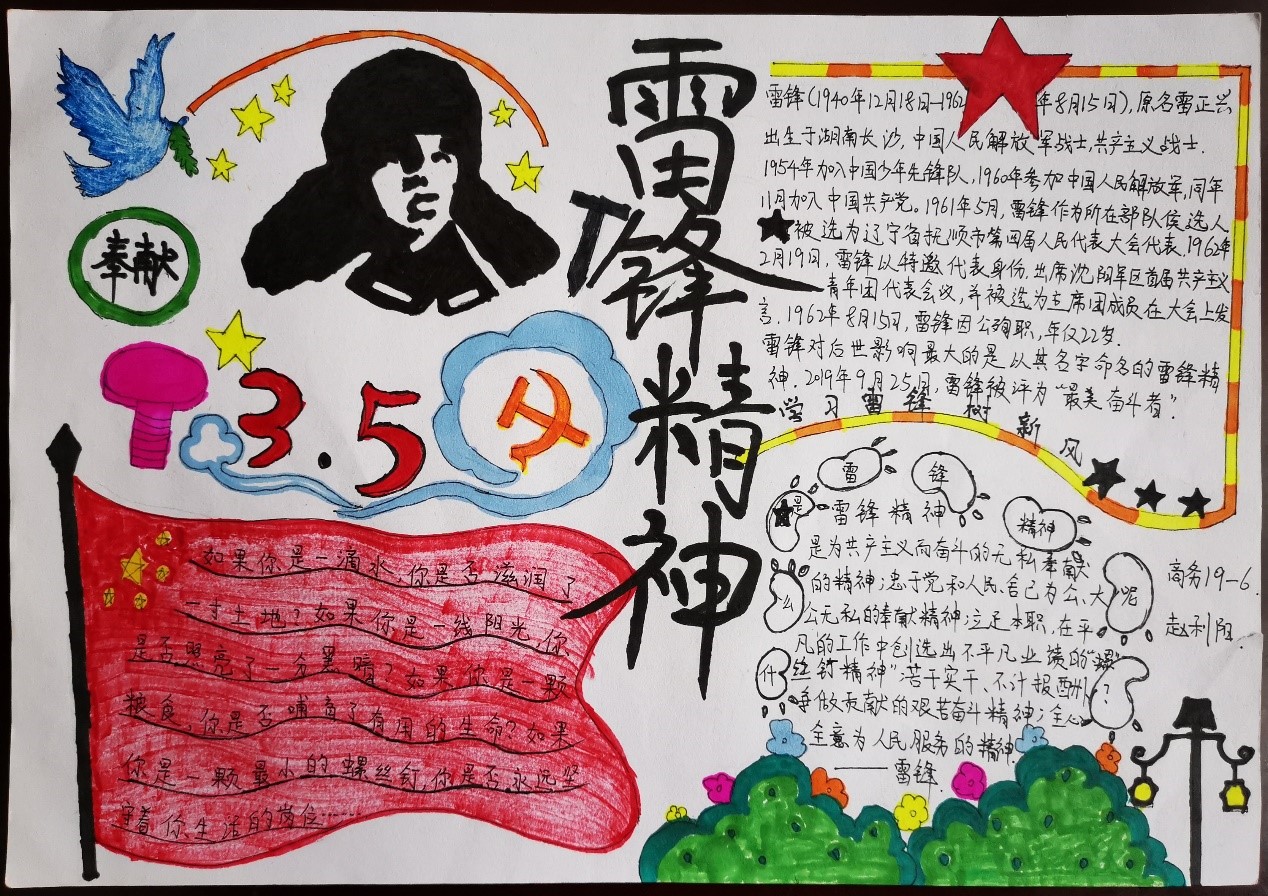 雷锋精神
奉献
3.5
雷锋(1940年12月18日—1962年8月15日),原名雷正兴
出生于湖南长沙,中国人民解放军战士,共产主义战士.
1954年加入中国少年先锋队,1960年参加中国人民解放军,同年
11月加入中国共产党。1961年5月,雷锋作为所在部队侯选人
被选为辽宁省抚顺市第四届人民代表大会代表,1962年
2月19日,雷锋以特邀代表身份,出席沈阳军区首届共产主义
青年团代表会议,并被选为主席团成员在大会上发
言,1962年8月15日,雷锋因公殉职,年仅22岁.
雷锋对后世影响最大的是以其名字命名的雷锋精
神.2019年9月25日,雷锋被评为“最美奋斗者”.
学习雷锋树新风
什么是雷锋精神呢?
雷锋精神
是为共产主义而奋斗的无私奉献
的精神;忠于党和人民、舍己为公、大
公无私的奉献精神;立足本职,在平
凡的工作中创造出不平凡业绩的“螺
丝钉精神”;苦干实干、不计报酬、
争做贡献的艰苦奋斗精神;全心
全意为人民服务的精神.
——雷锋
商务19-6
赵利阳
如果你是一滴水,你是否滋润了
一寸土地?如果你是一线阳光,你
是否照亮了一分黑暗?如果你是一颗
粮食,你是否哺育了有用的生命?如果
你是一颗最小的螺丝钉,你是否永远坚
守着你生活的岗位……